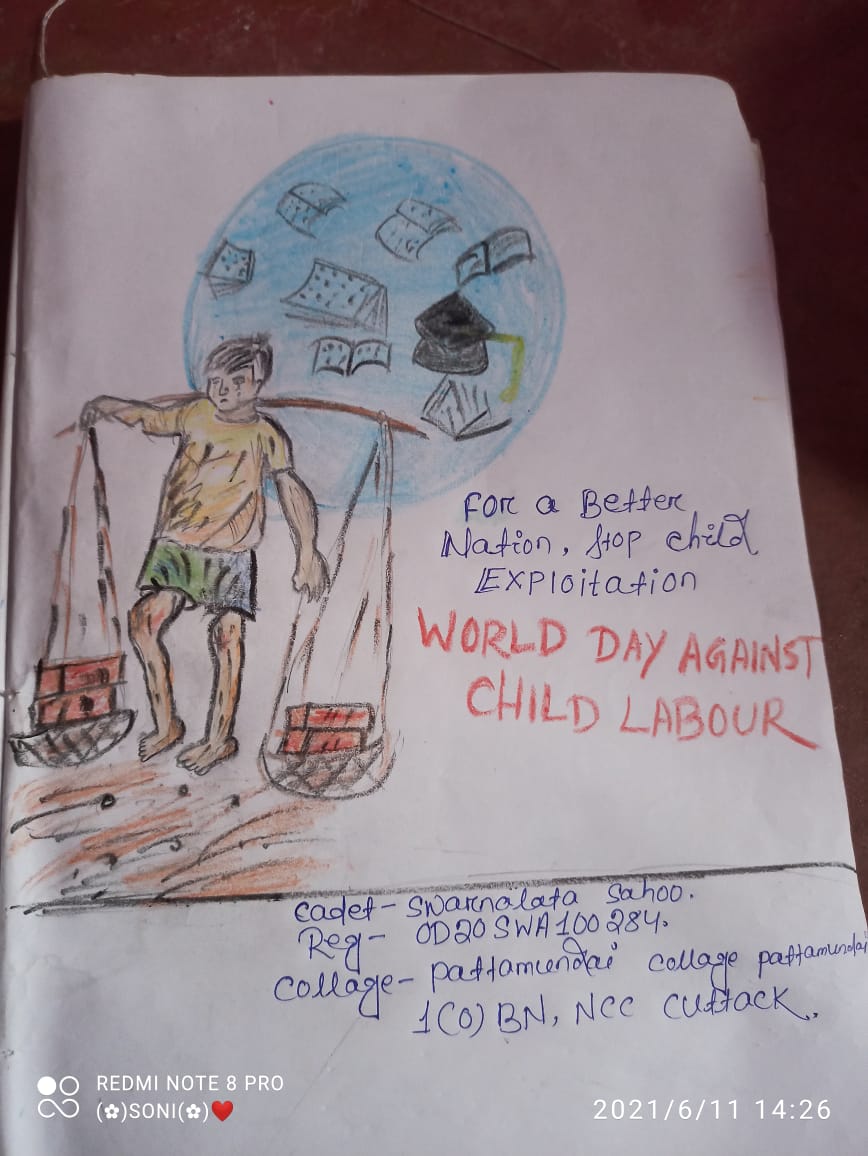 For a Better
Nation, Stop child
Exploitation
WORLD DAY AGAINST
CHILD LABOUR
cadet- Swarnalata Sahoo.
Reg- OD20SWA100284.
Collage- pattamundai collage pattamundai
1(O) BN, NCC CUTTACK.
REDMI NOTE 8 PRO
(✿)SONI(✿)❤
2021/6/11 14:26